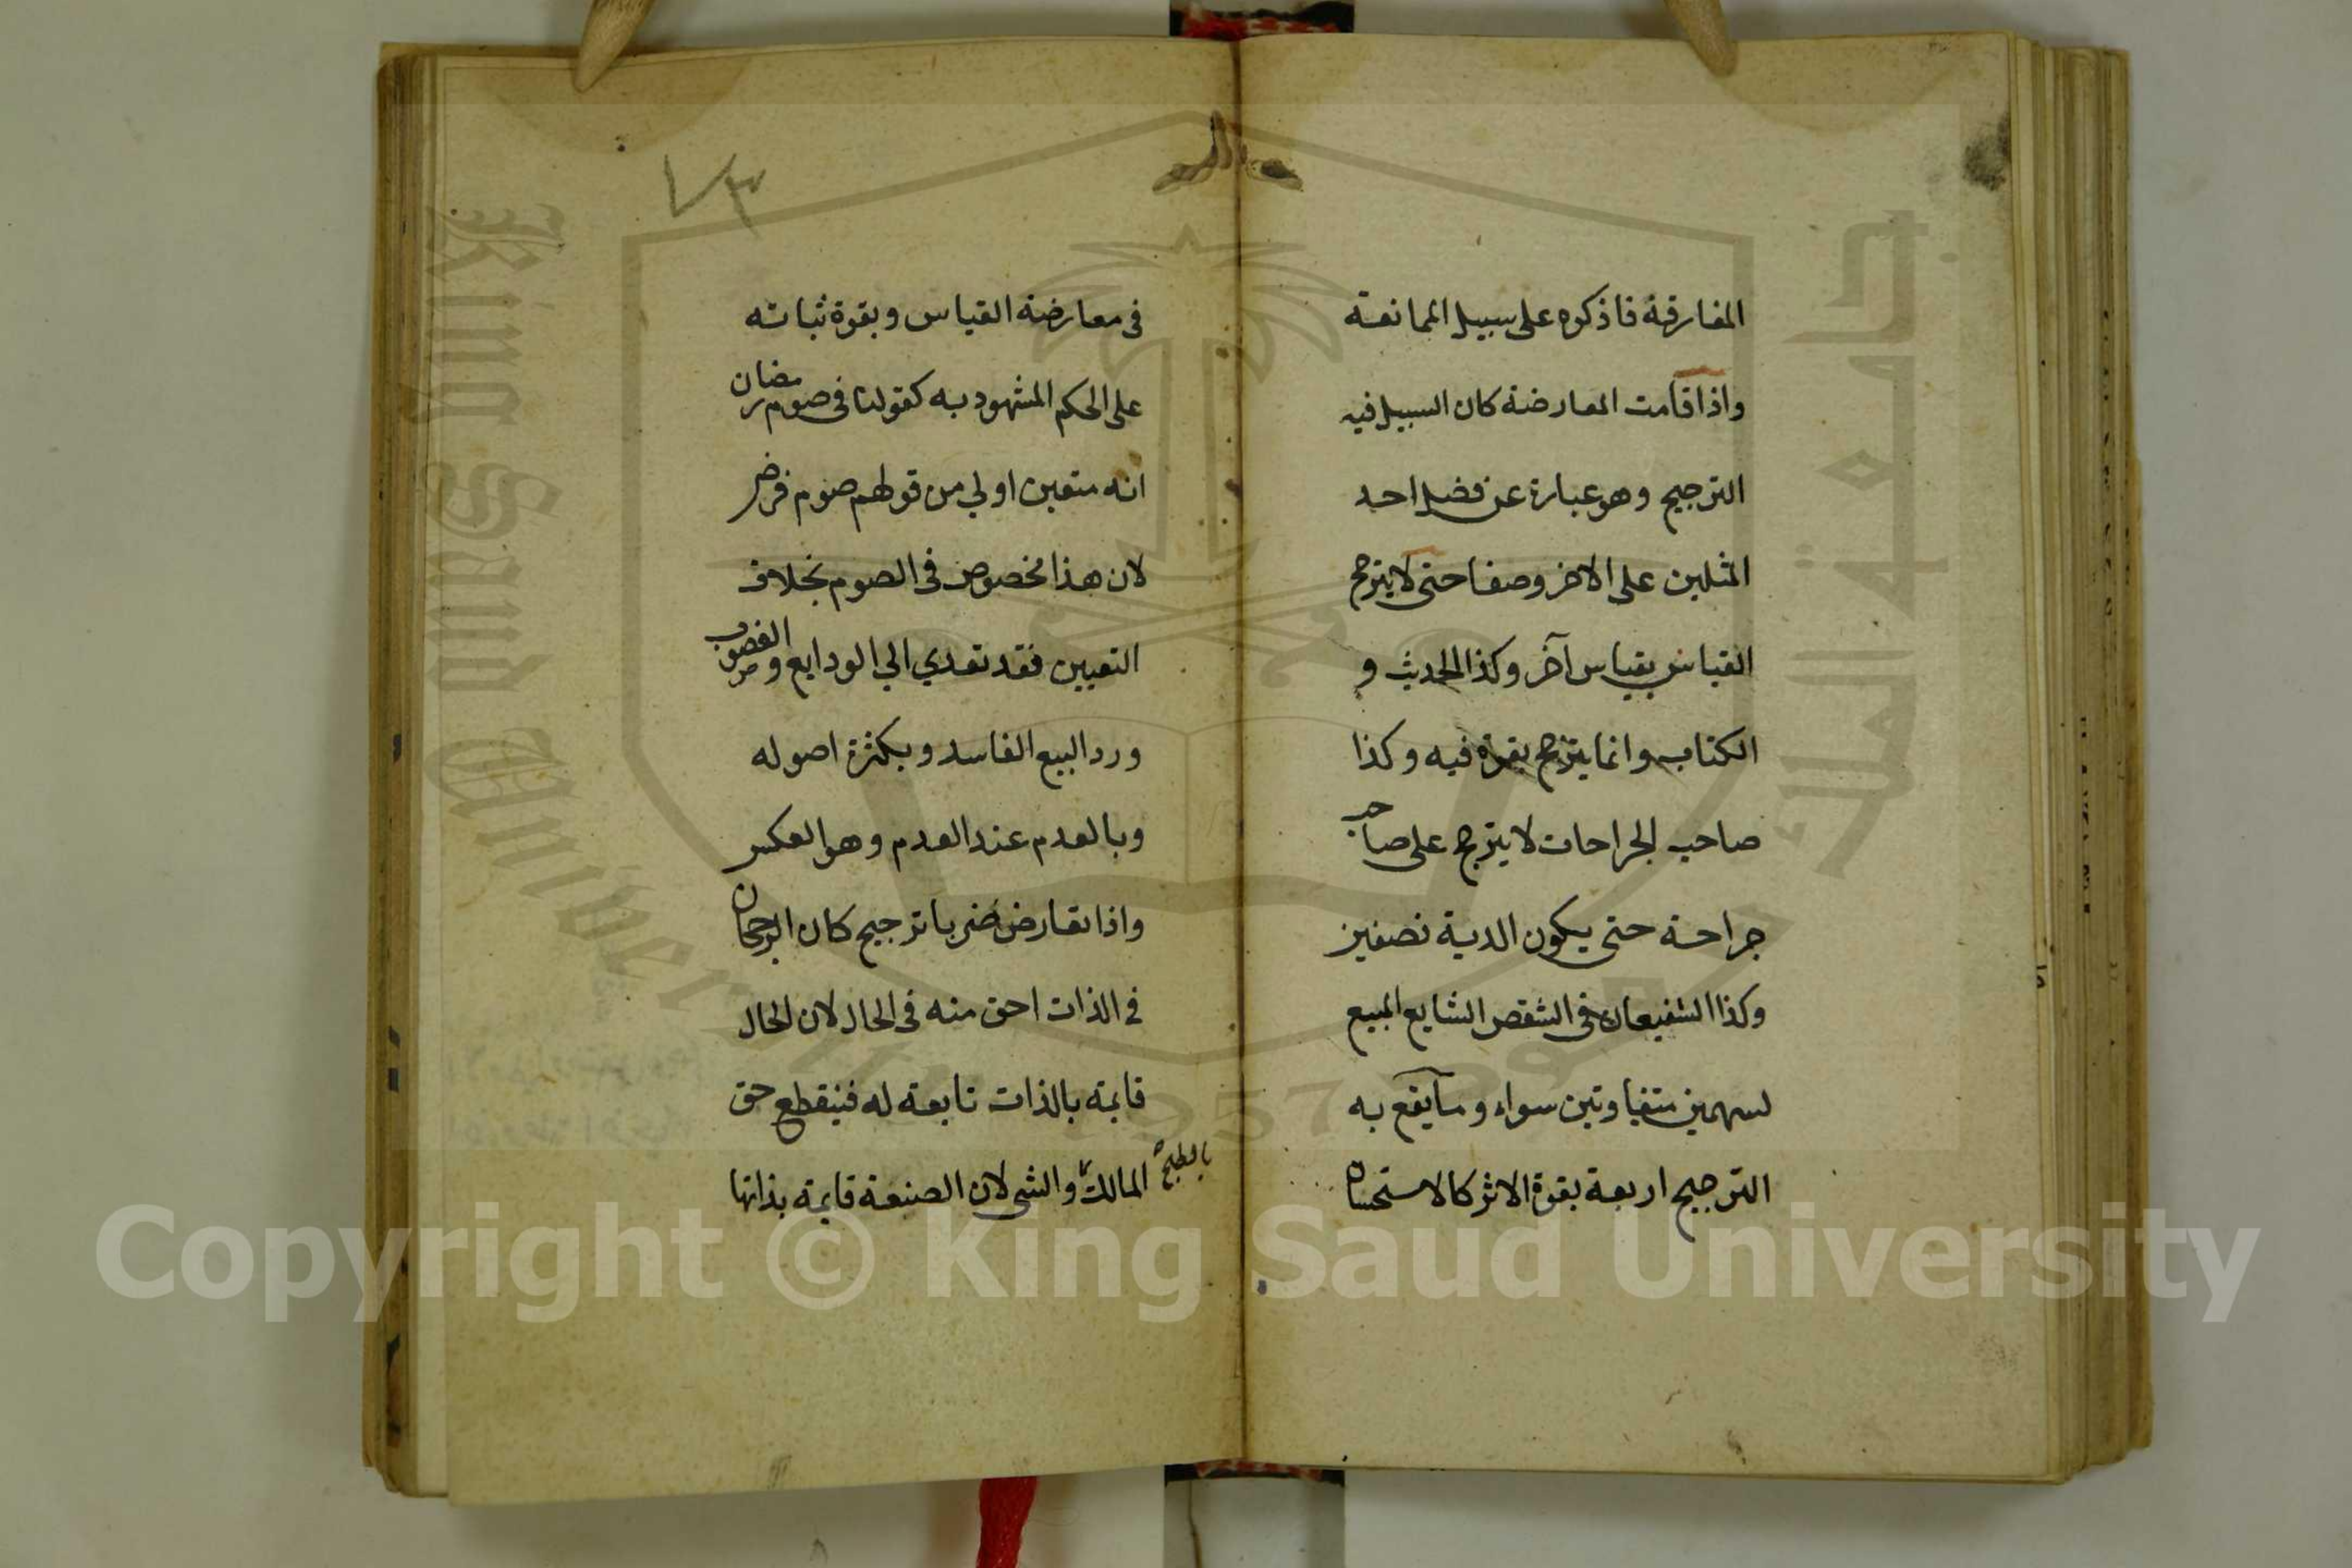 المفارقة فاذكره على سبيل الممانعة
واذا قامت المعارضة كان السبيل فيه
الترجيح وهو عبارة عن فضل احد
المثلين على الاخر وصفا حتى لا يترجح
القياس بقياس آخر وكذا الحديث و
الكتاب وانما يترجح بقوة فيه وكذا
صاحب الجراحات لا يترجح على صاحب
جراحة حتى يكون الدية نصفين
وكذا الشفيعان في الشقص الشايع المبيع
لسهمين متفاوتين سواء وما يقع به
الترجيح اربعة بقوة الاثر كالاستحسان
٧٣
في معارضة القياس وبقوة ثباته
على الحكم المشهود به كقولنا في صوم رمضان
انه متعين اولي من قولهم صوم فرض
لان هذا مخصوص في الصوم بخلاف
التعيين فقد تعدي الي الودايع والغصوب
ورد البيع الفاسد وبكثرة اصوله
وبالعدم عند العدم وهو العكس
واذا تعارض ضربا ترجيح كان الرجحان
في الذات احق منه في الحال لان الحال
قايمة بالذات تابعة له فينقطع حق
المالك بالطبخ والشي لان الصنعة قايمة بذاتها
جامعة الملك سعود
King Saud University
1957
Copyright © King Saud University